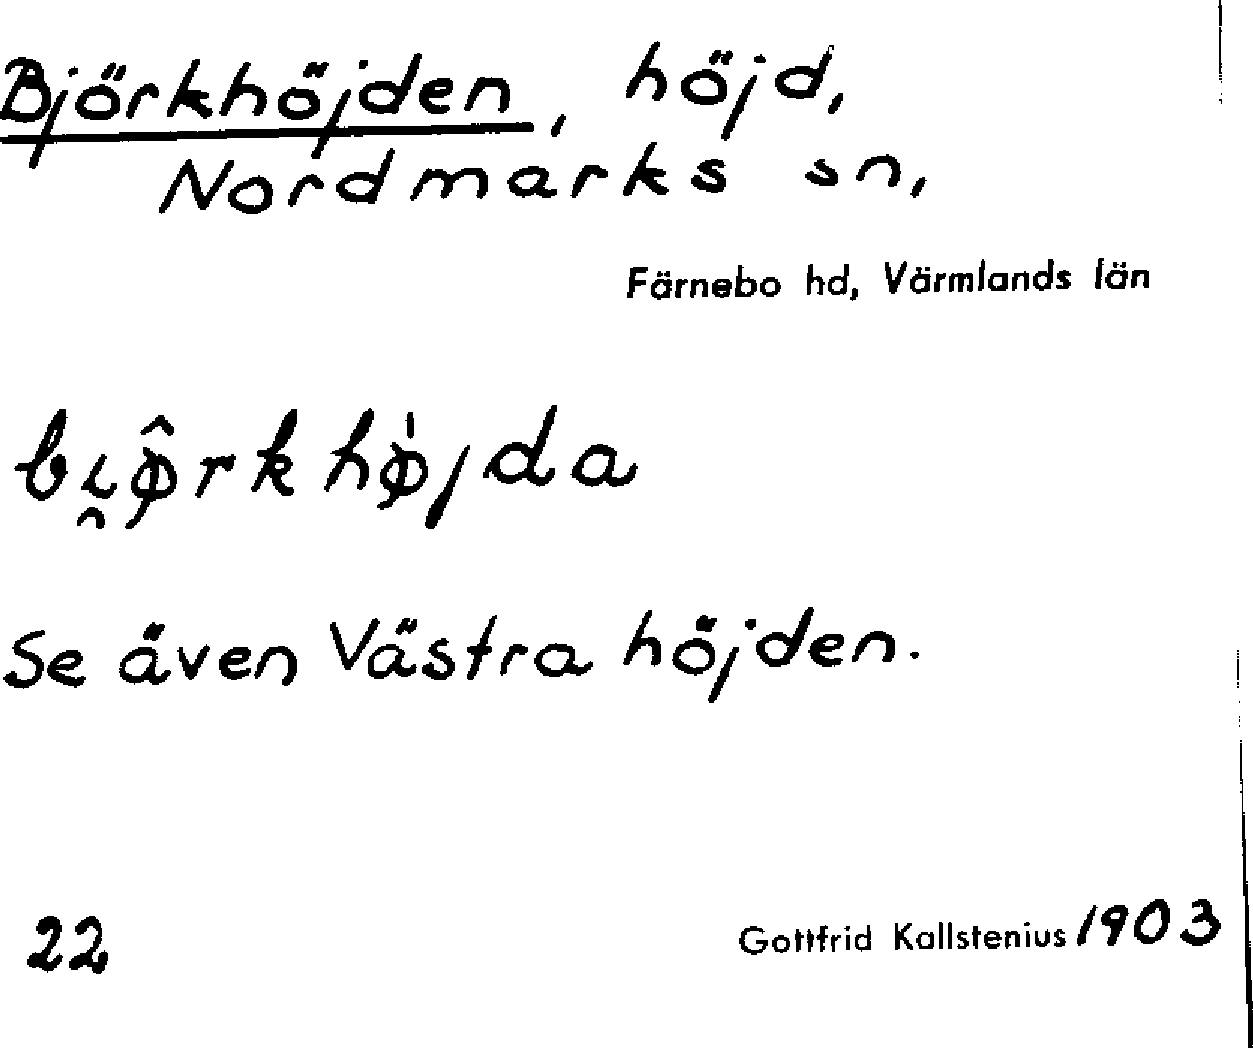 Björkhöjden, höjd,
Nordmarks sn,
Färnebo hd, Värmlands län
bi̯ø̂rkhø̍jda
Se även Västra höjden.
22
Gottfrid Kallstenius 1903